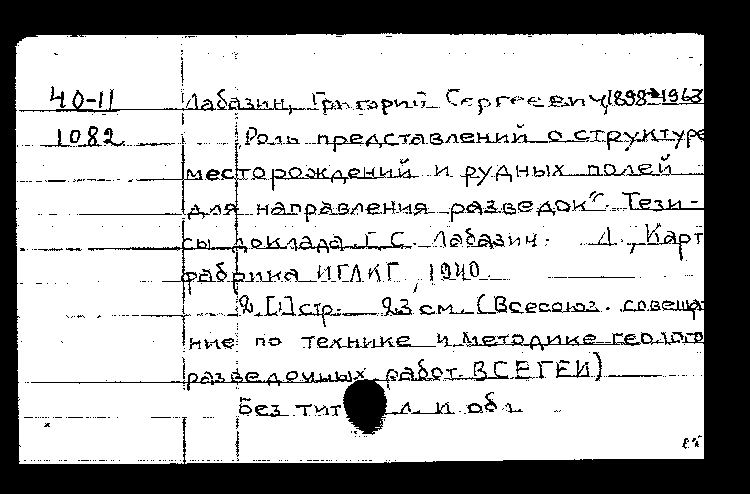 40-11 Лабазин, Григорий Сергеевич, 1898-1963
1082 Роль представлений о структуре
месторождений и рудных полей
для направления разведок". Тези-
сы доклада Г. С. Лабазин. Л., Карт
фабрика ИГЛКГ, 1940
2, [1] стр. 23 см. (Всесоюз. совеща
ние по технике и методике геолого
разведочных работ. ВСЕГЕИ)
Без тит л. и обл.